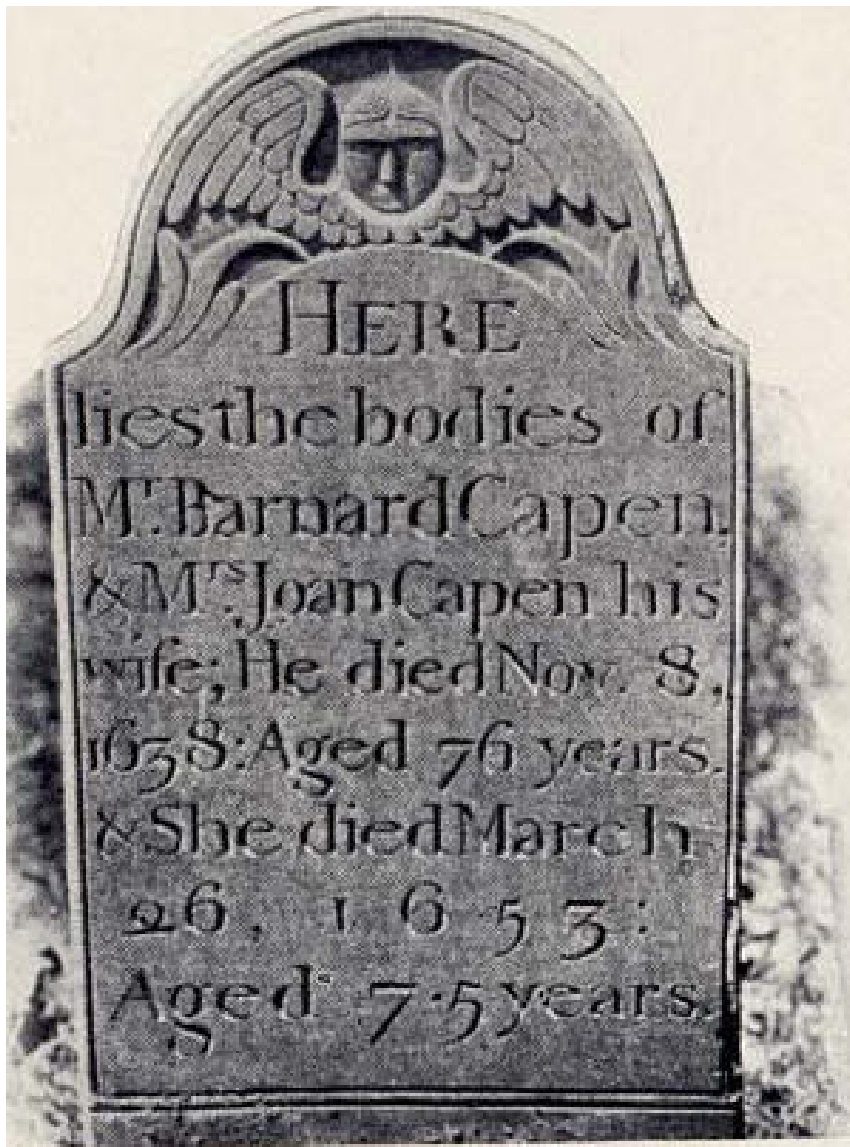 HERE
lies the bodies of
Mr. Barnard Capen,
& Mrs. Joan Capen his
wife; He died Nov. 8,
1638: Aged 76 years.
& She died March
26, 1653:
Aged 75 years.